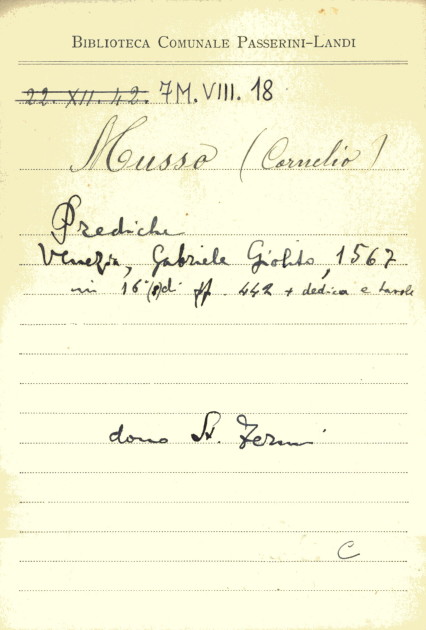 BIBLIOTECA COMUNALE PASSERINI-LANDI
22. XII. 42. 7M.VIII.18
Musso (Cornelio)
Prediche
Venezia, Gabriele Giolito, 1567
in 16° di ff. 442 + dedica e tavole
dono St. Fermi
C